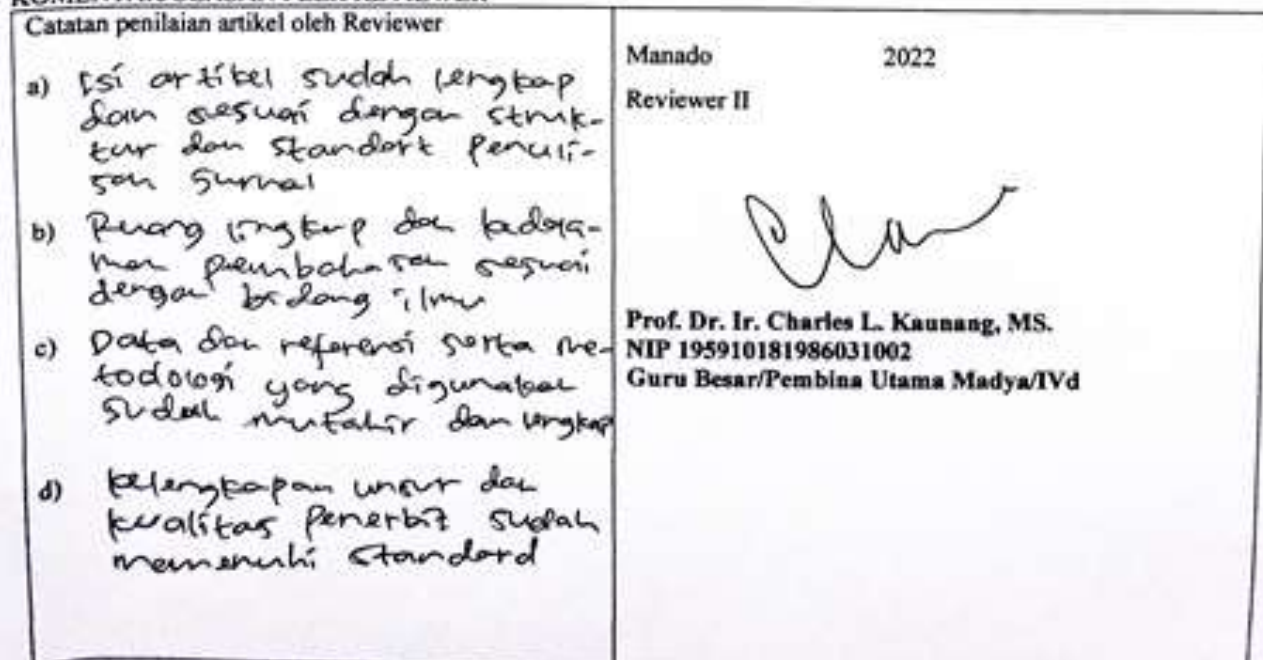 Catatan penilaian artikel oleh Reviewer
a) Isi artikel sudah lengkap
dan sesuai dengan struk-
tur dan standart penuli-
san Jurnal
b) Ruang lingkup dan kedala-
man pembahasan sesuai
dengan bidang ilmu
c) Data dan referensi serta me-
todologi yang digunakan
sudah mutahir dan lengkap
d) kelengkapan unsur dan
kualitas Penerbit sudah
memenuhi standard
Manado 2022
Reviewer II
Prof. Dr. Ir. Charles L. Kaunang, MS.
NIP 195910181986031002
Guru Besar/Pembina Utama Madya/IVd